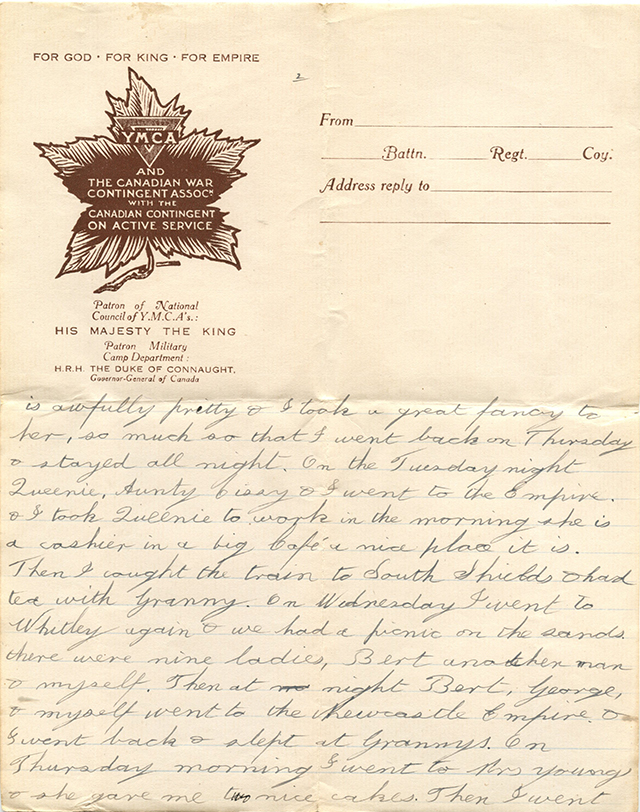 FOR GOD · FOR KING · FOR EMPIRE
2
YMCA
AND
THE CANADIAN WAR
CONTINGENT ASSOCN
WITH THE
CANADIAN CONTINGENT
ON ACTIVE SERVICE
Patron of National
Council of Y.M.C.A's.:
HIS MAJESTY THE KING
Patron Military
Camp Department:
H.R.H. THE DUKE OF CONNAUGHT,
Governor-General of Canada
From
Battn. Regt. Coy.
Address reply to
is awfully pretty & I took a great fancy to
her, so much so that I went back on Thursday
& stayed all night. On the Tuesday night
Queenie, Aunty Cissy & I went to the Empire.
& I took Queenie to work in the morning she is
a cashier in a big Café a nice place it is.
Then I caught the train to South Shields & had
tea with Granny. On Wednesday I went to
Whitley again & we had a picnic on the sands.
there were nine ladies, Bert another man
& myself. Then at night Bert, George,
& myself went to the Newcastle Empire. &
I went back & slept at Grannys. On
Thursday morning I went to Mrs Youngs
& she gave me two nice cakes. Then I went